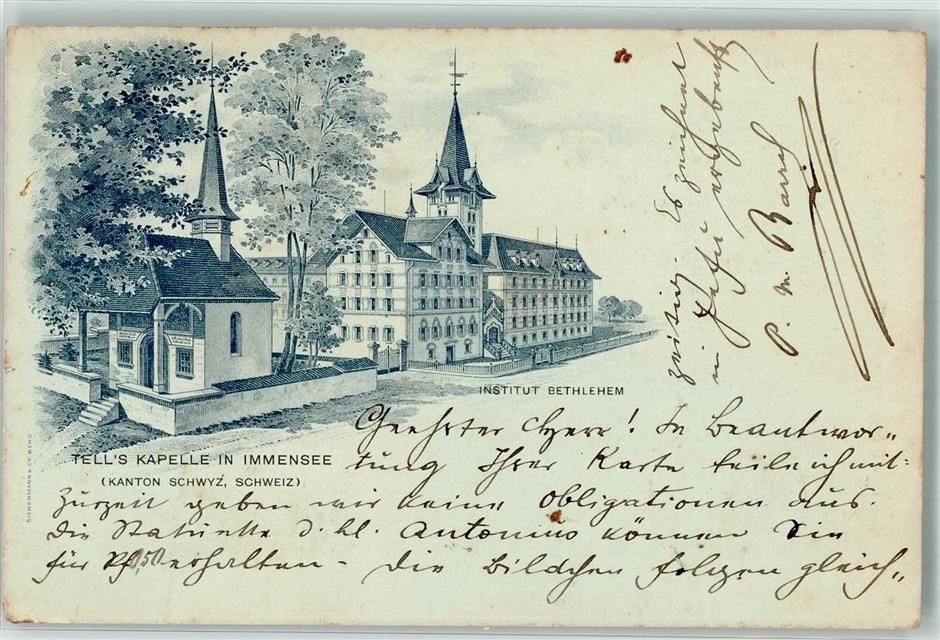 INSTITUT BETHLEHEM
TELL'S KAPELLE IN IMMENSEE
(KANTON SCHWYZ, SCHWEIZ)
SIEBENMANN & CIE. BERN
Geehrter Herr! In Beantwor-
tung Ihrer Karte teile ich mit:
Zurzeit geben wir keine Obligationen aus.
Die Statuette d. hl. Antonius können Sie
für 0,50 erhalten - Die Bildchen folgen gleich-
zeitig. Es zeichnet
ergebenst
P. M. Barral